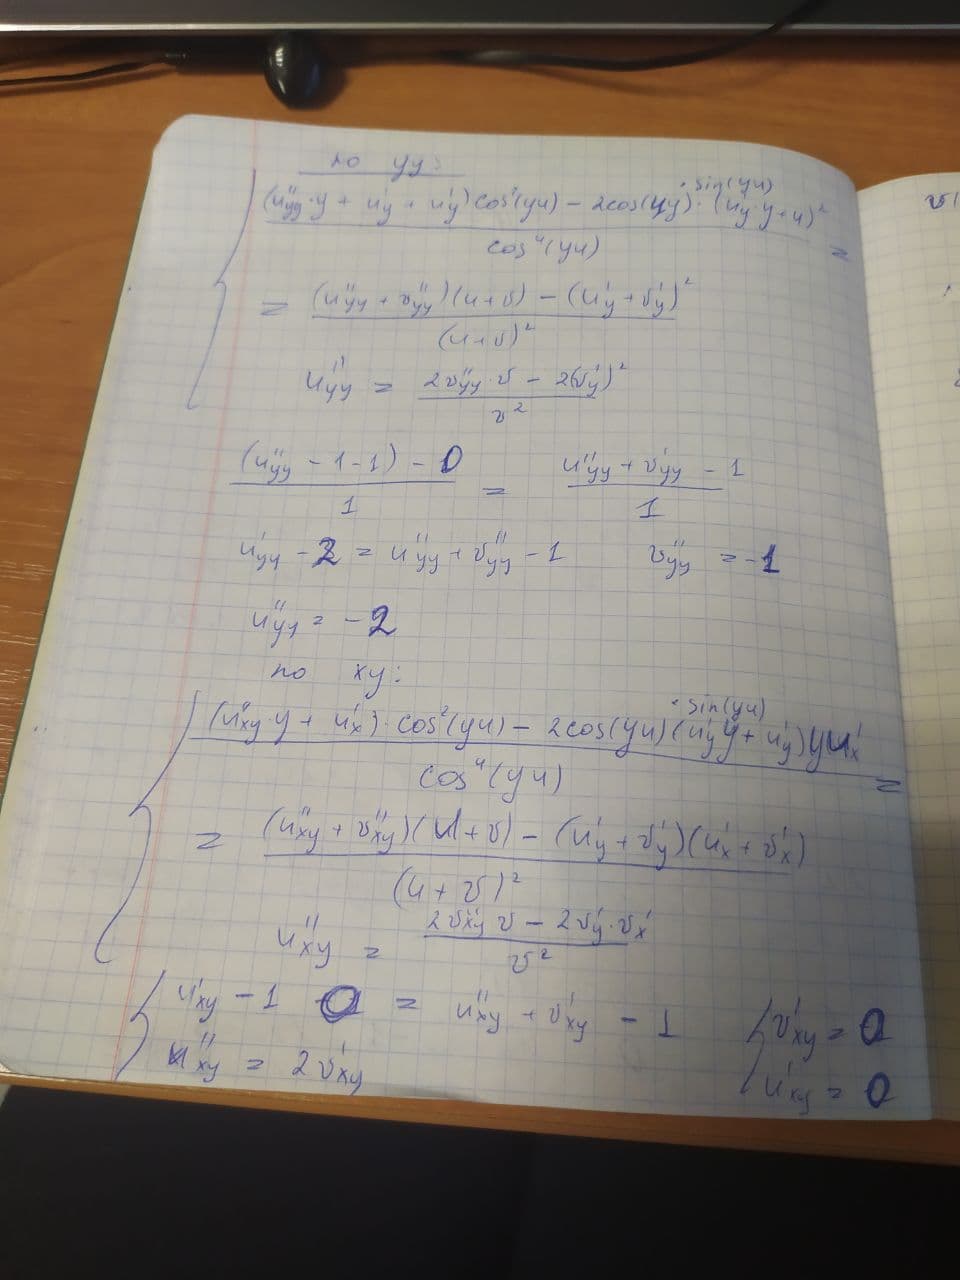 по yy:
((u''yy·y + u'y + u'y) cos²(yu) − 2cos(yy)·sin(yu)·(u'y·y+u)²) / cos⁴(yu) =
= ((u''yy + v''yy)(u+v) − (u'y + v'y)²) / (u+v)²
u''yy = (2v''yy·v − 2(v'y)²) / v²
((u''yy − 1 − 1) − 0) / 1 = (u''yy + v'yy − 1) / 1
u'yy − 2 = u''yy + v''yy − 1 v''yy = −1
u''yy = −2
по xy:
((u''xy·y + u'x)·cos²(yu) − 2cos(yu)·sin(yu)(u'y y + u'y)yu'x) / cos⁴(yu) =
= ((u''xy + v''xy)(u+v) − (u'y + v'y)(u'x + v'x)) / (u+v)²
u''xy = (2v''xy v − 2v'y·v'x) / v²
u'xy − 1 = u''xy + v'xy − 1 v'xy = 0
u''xy = 2v'xy u'xy = 0